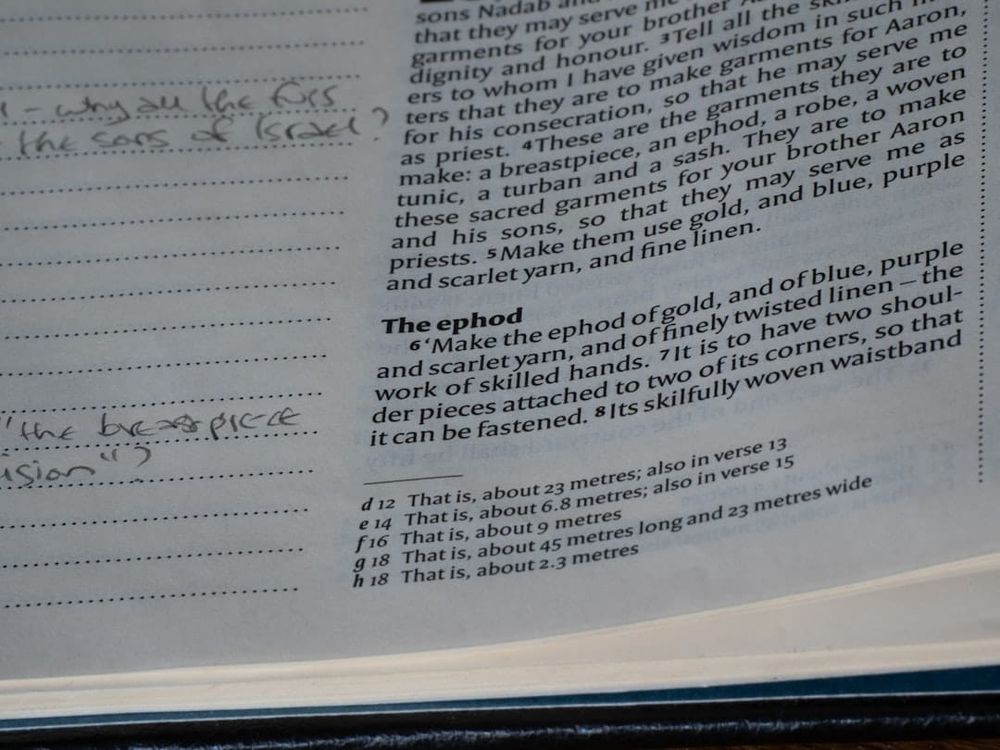 – why all the fuss
the sons of Israel?
"the breastpiece
sons Nadab and
that they may serve me
garments for your brother
dignity and honour. 3Tell all the
ers to whom I have given wisdom in such
ters that they are to make garments for Aaron,
for his consecration, so that he may serve me
as priest. 4These are the garments they are to
make: a breastpiece, an ephod, a robe, a woven
tunic, a turban and a sash. They are to make
these sacred garments for your brother Aaron
and his sons, so that they may serve me as
priests. 5Make them use gold, and blue, purple
and scarlet yarn, and fine linen.
The ephod
6‘Make the ephod of gold, and of blue, purple
and scarlet yarn, and of finely twisted linen – the
work of skilled hands. 7It is to have two shoul-
der pieces attached to two of its corners, so that
it can be fastened. 8Its skilfully woven waistband
d 12 That is, about 23 metres; also in verse 13
e 14 That is, about 6.8 metres; also in verse 15
f 16 That is, about 9 metres
g 18 That is, about 45 metres long and 23 metres wide
h 18 That is, about 2.3 metres